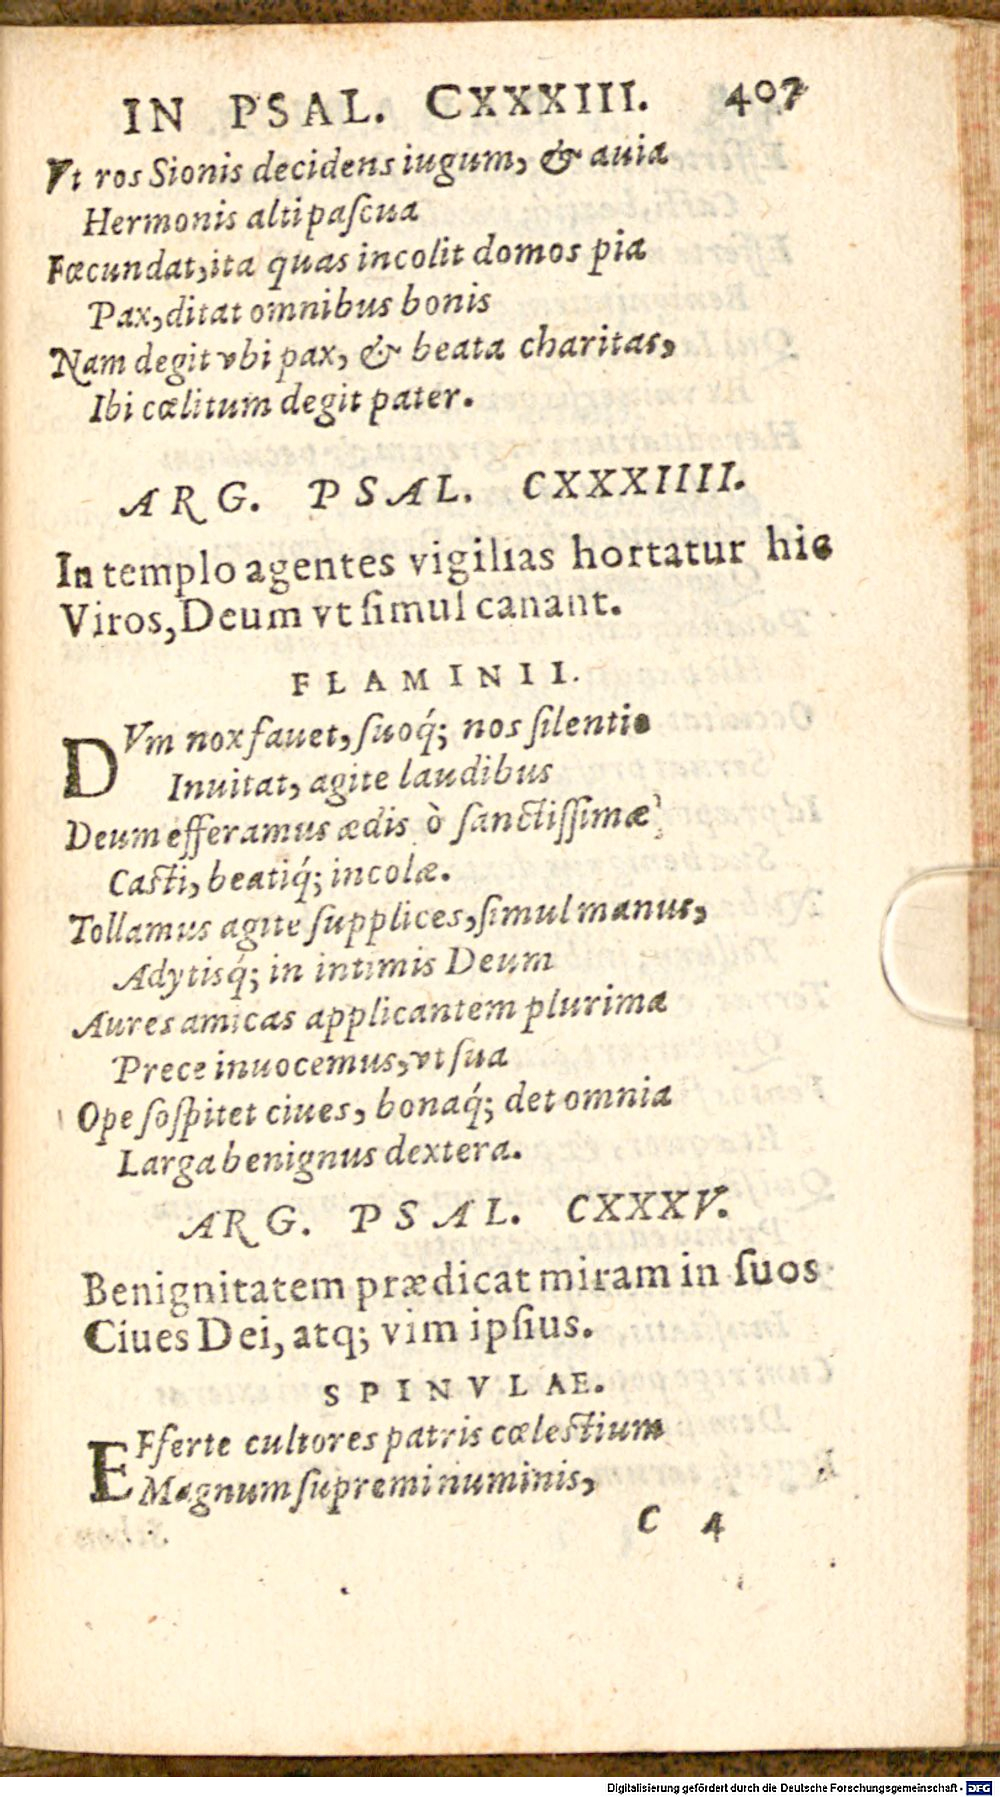 IN PSAL. CXXXIII. 407
Vt ros Sionis decidens iugum, & auia
Hermonis alti pascua
Fœcundat, ita quas incolit domos pia
Pax, ditat omnibus bonis
Nam degit vbi pax, & beata charitas,
Ibi cœlitum degit pater.
ARG. PSAL. CXXXIIII.
In templo agentes vigilias hortatur hic
Viros, Deum vt ſimul canant.
FLAMINII.
DVm nox fauet, ſuoq́; nos ſilentio
Inuitat, agite laudibus
Deum efferamus ædis ò ſanctiſſimæ
Caſti, beatiq́; incolæ.
Tollamus agite ſupplices, ſimul manus,
Adytisq́; in intimis Deum
Aures amicas applicantem plurima
Prece inuocemus, vt ſua
Ope ſoſpitet ciues, bonaq́; det omnia
Larga benignus dextera.
ARG. PSAL. CXXXV.
Benignitatem prædicat miram in ſuos
Ciues Dei, atq; vim ipſius.
SPINVLAE.
EFferte cultores patris cœleſtium
Magnum ſupremi numinis,
C 4
Digitalisierung gefördert durch die Deutsche Forschungsgemeinschaft - DFG